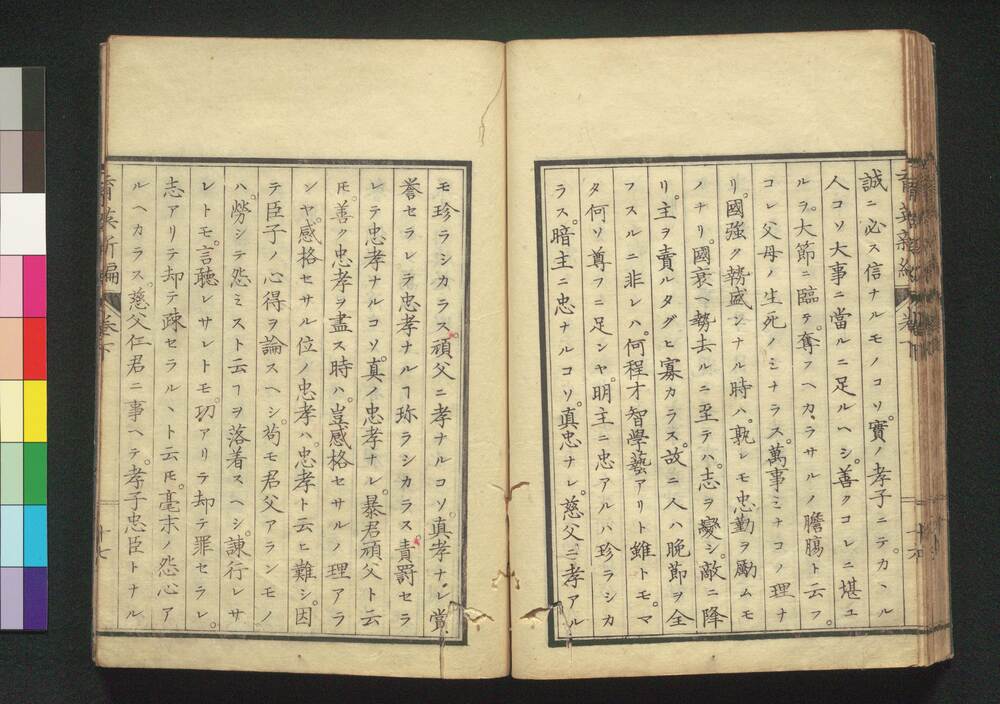 誠ニ必ス信ナルモノコソ。實ノ孝子ニテ。カヽル
人コソ大事ニ當ルニ足ルヘシ。善クコレニ堪ユ
ルヲ。大節ニ臨テ。奪フヘカラサルノ膽膓ト云フ。
コレ父母ノ生死ノミナラス。萬事ミナコノ理ナ
リ。國強ク勢盛ンナル時ハ。孰レモ忠勤ヲ勵ムモ
ノナリ。國衰ヘ勢去ルニ至テハ。志ヲ變シ。敵ニ降
リ。主ヲ賣ルタグヒ寡カラス。故ニ人ハ晩節ヲ全
フスルニ非レハ。何程才智學藝アリト雖トモ。マ
タ何ソ尊フニ足ンヤ。明主ニ忠アルハ珍ラシカ
ラス。暗主ニ忠ナルコソ。真忠ナレ。慈父ニ孝アル
モ珍ラシカラス。頑父ニ孝ナルコソ。真孝ナレ。賞
譽セラレテ忠孝ナルヿ珎ラシカラス。責罸セラ
レテ忠孝ナルコソ。真ノ忠孝ナレ。暴君頑父ト云
𪜈。善ク忠孝ヲ盡ス時ハ。豈感格セサルノ理アラ
ンヤ。感格セサル位ノ忠孝ハ。忠孝ト云ヒ難シ。因
テ臣子ノ心得ヲ論スヘシ。苟モ君父アランモノ
ハ。勞シテ怨ミスト云ヿヲ落着スヘシ。諌行レサ
レトモ。言聴レサレトモ。功アリテ却テ罪セラレ。
志アリテ却テ疎セラルヽト云𪜈。毫末ノ怨心ア
ルヘカラス。慈父仁君ニ事ヘテ。孝子忠臣トナル
卷下
十七